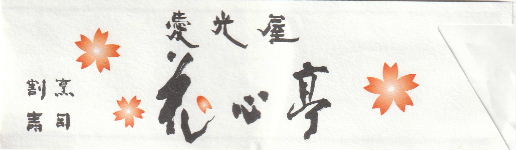 愛光屋
花心亭
割烹
寿司